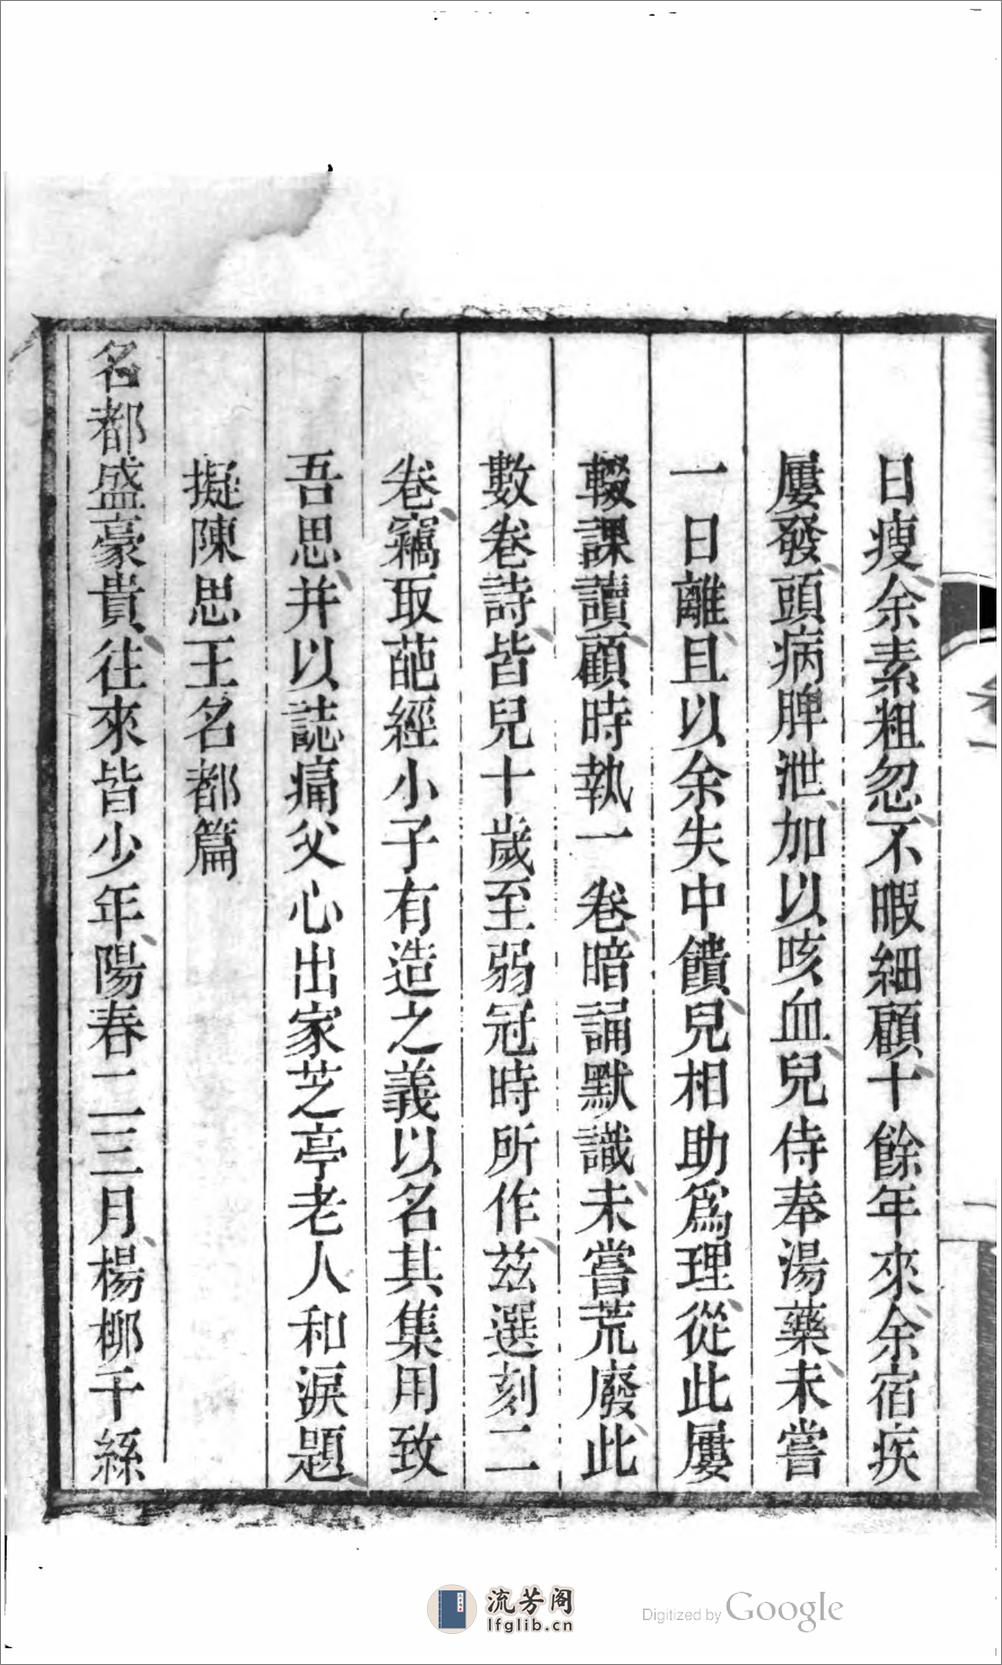 日瘦余素粗忽不暇細顧十餘年來余宿疾
屢發頭病脾泄加以咳血兒侍奉湯藥未嘗
一日離且以余失中饋兒相助爲理從此屢
輟課讀顧時執一卷暗誦默識未嘗荒廢此
數卷詩皆兒十歲至弱冠時所作茲選刻二
卷竊取葩經小子有造之義以名其集用致
吾思并以誌痛父心出家芝亭老人和淚題
擬陳思王名都篇
名都盛豪貴往來皆少年陽春二三月楊柳千絲
流芳阁
lfglib.cn
Digitized by Google